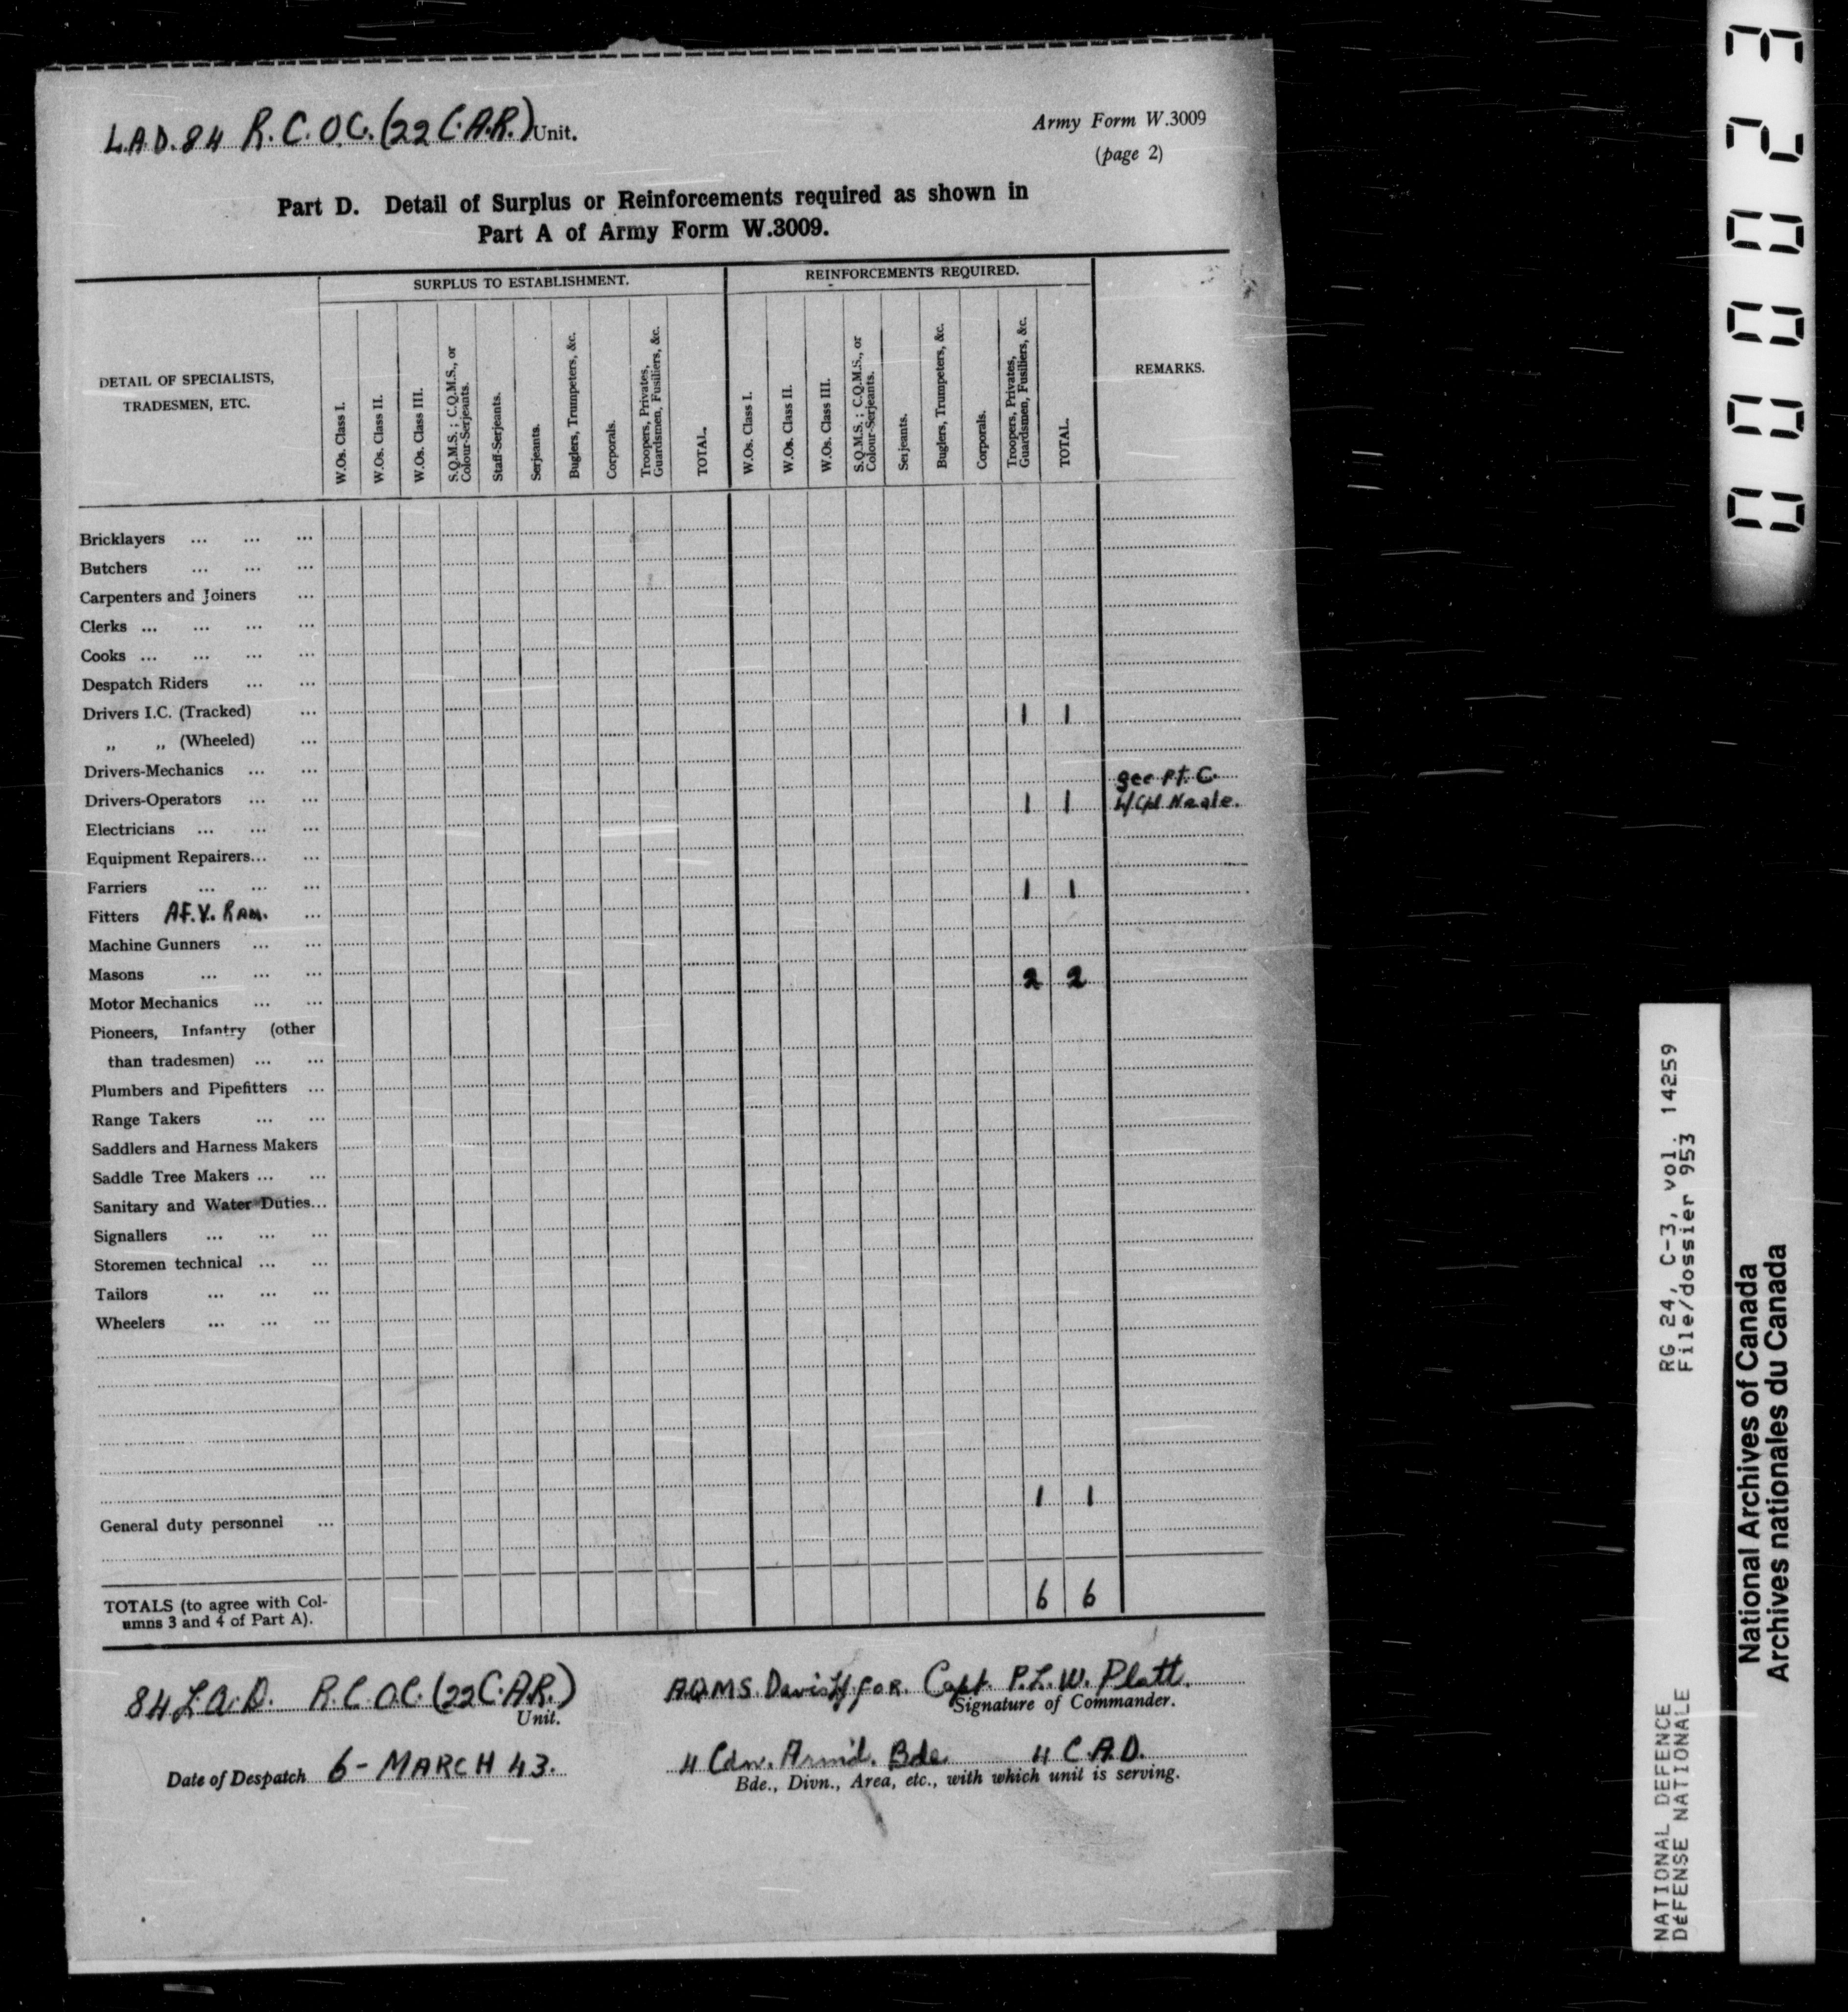 L.A.D. 84 R.C.O.C. (22 C.A.R.) Unit.
Army Form W.3009
(page 2)
Part D. Detail of Surplus or Reinforcements required as shown in
Part A of Army Form W.3009.
DETAIL OF SPECIALISTS,
TRADESMEN, ETC.
SURPLUS TO ESTABLISHMENT.
W.Os. Class I.
W.Os. Class II.
W.Os. Class III.
S.Q.M.S.; C.Q.M.S., or
Colour-Serjeants.
Staff-Serjeants.
Serjeants.
Buglers, Trumpeters, &c.
Corporals.
Troopers, Privates,
Guardsmen, Fusiliers, &c.
TOTAL.
REINFORCEMENTS REQUIRED.
W.Os. Class I.
W.Os. Class II.
W.Os. Class III.
S.Q.M.S.; C.Q.M.S., or
Colour-Serjeants.
Serjeants.
Buglers, Trumpeters, &c.
Corporals.
Troopers, Privates,
Guardsmen, Fusiliers, &c.
TOTAL.
REMARKS.
Bricklayers ... ... ...
Butchers ... ... ...
Carpenters and Joiners ...
Clerks ... ... ... ...
Cooks ... ... ... ...
Despatch Riders ... ...
Drivers I.C. (Tracked) ... 1 1
„ „ (Wheeled) ...
Drivers-Mechanics ... ... see Pt. C.
Drivers-Operators ... ... 1 1 L/Cpl Neale.
Electricians ... ... ...
Equipment Repairers... ...
Farriers ... ... ... 1 1
Fitters A.F.V. RAM. ...
Machine Gunners ... ...
Masons ... ... ... 2 2
Motor Mechanics ... ...
Pioneers, Infantry (other
than tradesmen) ... ...
Plumbers and Pipefitters ...
Range Takers ... ...
Saddlers and Harness Makers
Saddle Tree Makers ... ...
Sanitary and Water Duties...
Signallers ... ... ...
Storemen technical ... ...
Tailors ... ... ...
Wheelers ... ... ...
1 1
General duty personnel ...
TOTALS (to agree with Col-
umns 3 and 4 of Part A). 6 6
84 L.A.D. R.C.O.C. (22 C.A.R.)
Unit.
A.Q.M.S. Davis H. FOR. Capt. P.L.W. Platt.
Signature of Commander.
Date of Despatch 6 - MARCH 43.
4 Cdn. Armd. Bde. 4 C.A.D.
Bde., Divn., Area, etc., with which unit is serving.
000023
RG 24, C-3, vol. 14259
File/dossier 953
NATIONAL DEFENCE
DéFENSE NATIONALE
National Archives of Canada
Archives nationales du Canada